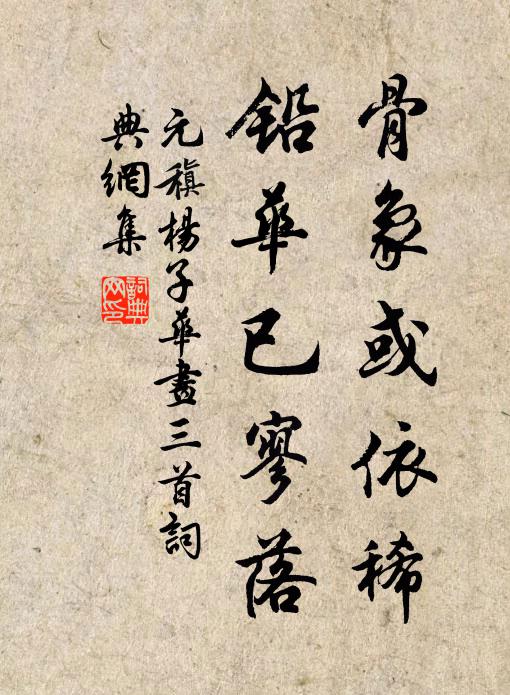 骨象或依稀
鉛華已寥落
元稹楊子華畫三首詞
典網集
詞典網印